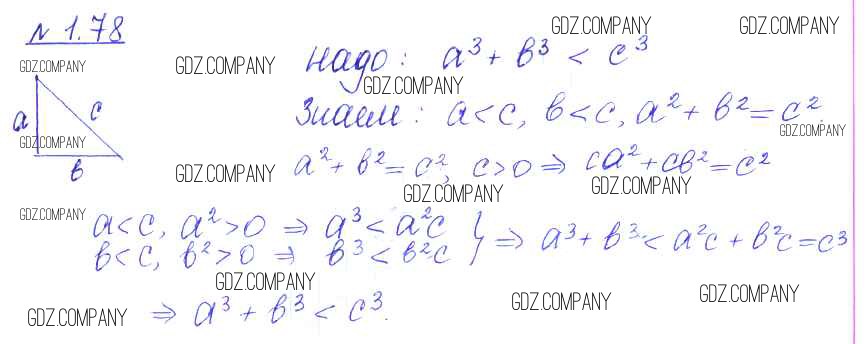 N 1.78
GDZ.COMPANY GDZ.COMPANY
GDZ.COMPANY GDZ.COMPANY
Надо: a³ + b³ < c³
GDZ.COMPANY
a c
b
Знаем: a < c, b < c, a² + b² = c²
GDZ.COMPANY GDZ.COMPANY
a² + b² = c², c > 0 ⇒ ca² + cb² = c²
GDZ.COMPANY GDZ.COMPANY GDZ.COMPANY
GDZ.COMPANY
a < c, a² > 0 ⇒ a³ < a²c
b < c, b² > 0 ⇒ b³ < b²c } ⇒ a³ + b³ < a²c + b²c = c³
GDZ.COMPANY
⇒ a³ + b³ < c³.
GDZ.COMPANY GDZ.COMPANY GDZ.COMPANY